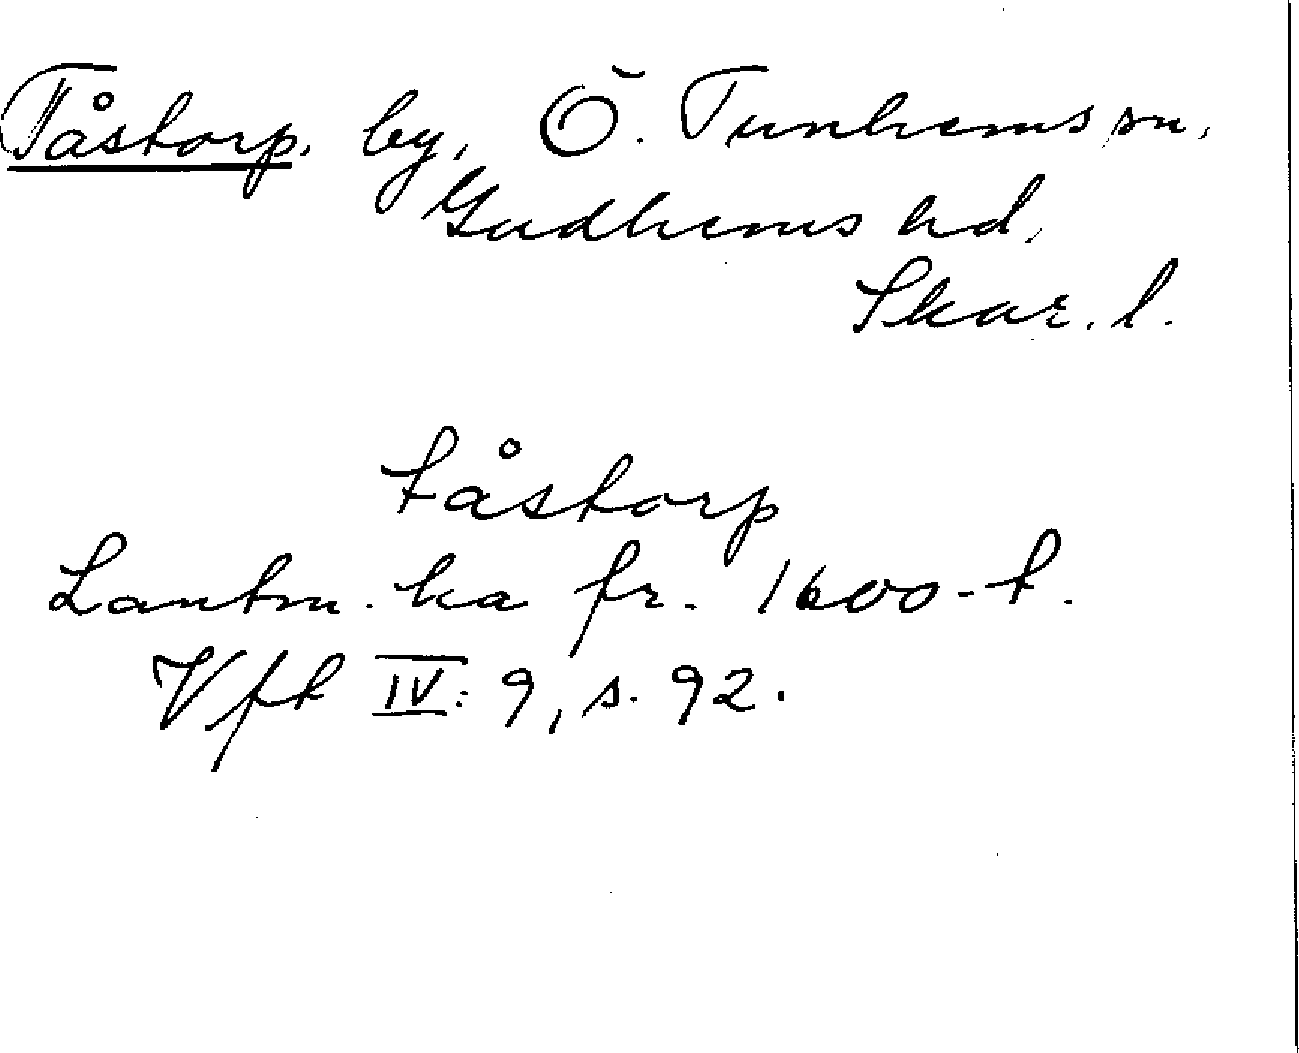 Tåstorp, by, Ö. Tunhems sn,
Gudhems hd,
Skar. l.
tåstorp
Lantm. ka fr. 1600-t.
Vft IV: 9, s. 92.